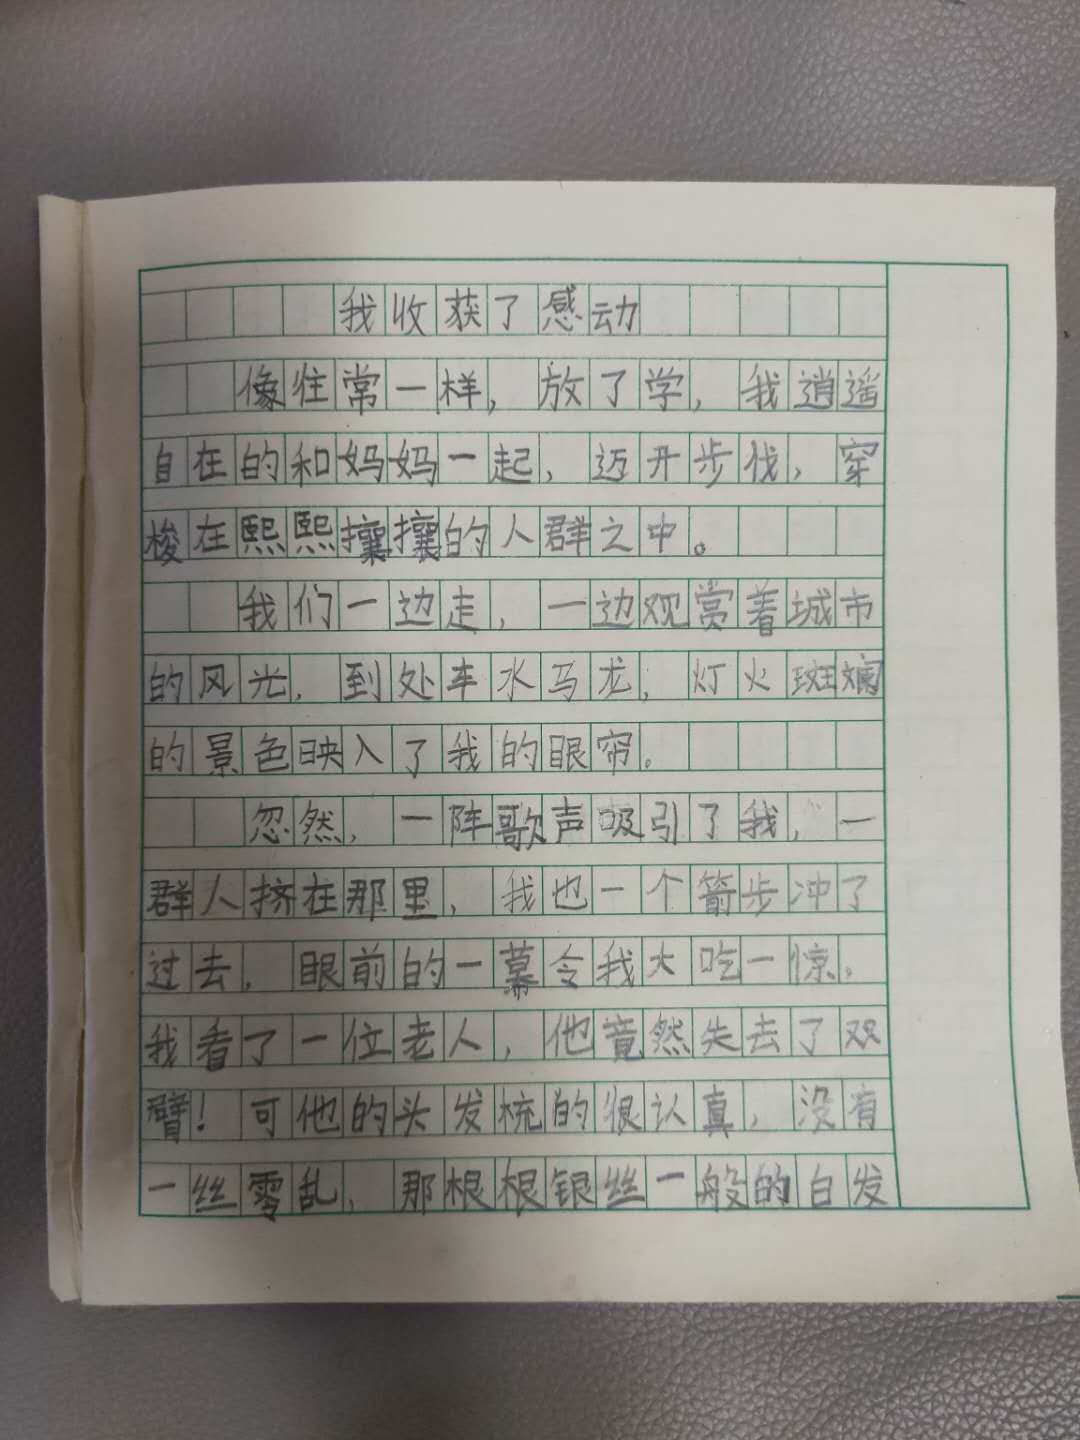 我收获了感动
像往常一样，放了学，我逍遥
自在的和妈妈一起，迈开步伐，穿
梭在熙熙攘攘的人群之中。
我们一边走，一边观赏着城市
的风光，到处车水马龙，灯火斑斓
的景色映入了我的眼帘。
忽然，一阵歌声吸引了我，一
群人挤在那里，我也一个箭步冲了
过去，眼前的一幕令我大吃一惊，
我看了一位老人，他竟然失去了双
臂！可他的头发梳的很认真，没有
一丝零乱，那根根银丝一般的白发